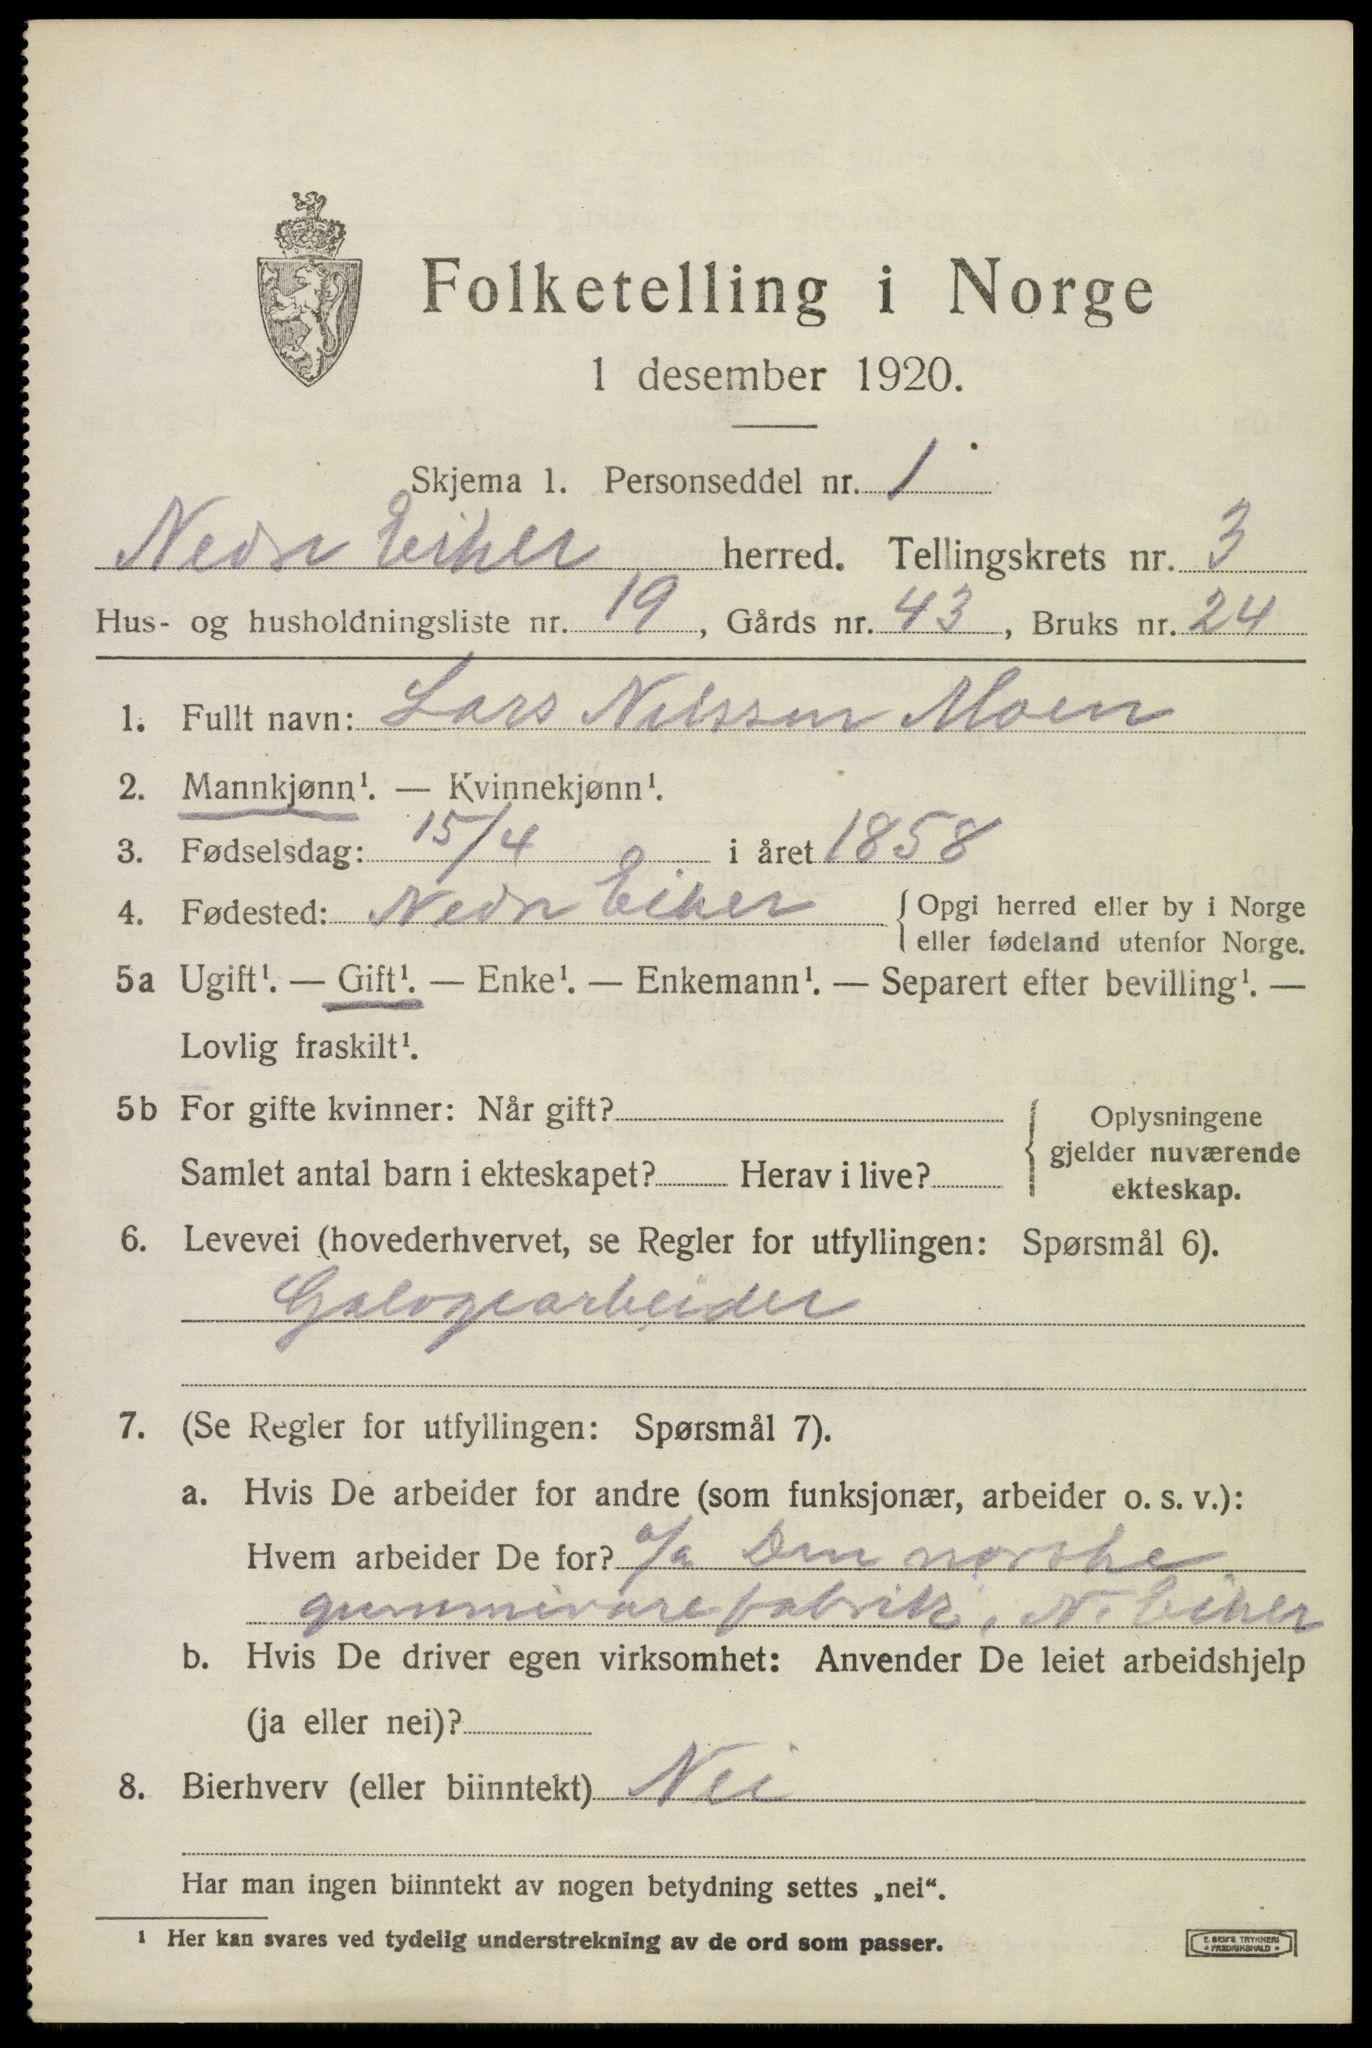 Folketelling i Norge
1 desember 1920.
Skjema 1. Personseddel nr. 1
Nedr Eiker herred. Tellingskrets nr. 3
Hus- og husholdningsliste nr. 19, Gårds nr. 43, Bruks nr. 24
1. Fullt navn: Lars Nilssen Moen
2. Mannkjønn¹. — Kvinnekjønn¹.
3. Fødselsdag: 15/4 i året 1858
4. Fødested: Nedr Eiker { Opgi herred eller by i Norge
eller fødeland utenfor Norge.
5a Ugift¹. — Gift¹. — Enke¹. — Enkemann¹. — Separert efter bevilling¹. —
Lovlig fraskilt¹.
5b For gifte kvinner: Når gift?
Samlet antal barn i ekteskapet? Herav i live?
Oplysningene
gjelder nuværende
ekteskap.
6. Levevei (hovederhvervet, se Regler for utfyllingen: Spørsmål 6).
Galogearbeider
7. (Se Regler for utfyllingen: Spørsmål 7).
a. Hvis De arbeider for andre (som funksjonær, arbeider o. s. v.):
Hvem arbeider De for? a/s Den norske
gummivarefabrik, N. Eiker
b. Hvis De driver egen virksomhet: Anvender De leiet arbeidshjelp
(ja eller nei)?
8. Bierhverv (eller biinntekt) Nei
Har man ingen biinntekt av nogen betydning settes „nei“.
¹ Her kan svares ved tydelig understrekning av de ord som passer.
E. SEM'S TRYKKERI
• FREDRIKSHALD •